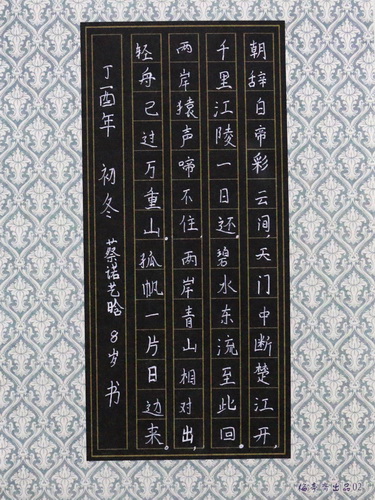 朝辞白帝彩云间,天门中断楚江开,
千里江陵一日还。碧水东流至此回。
两岸猿声啼不住,两岸青山相对出,
轻舟已过万重山。孤帆一片日边来。
丁酉年 初冬 蔡诺艺晗 8岁 书
出品02